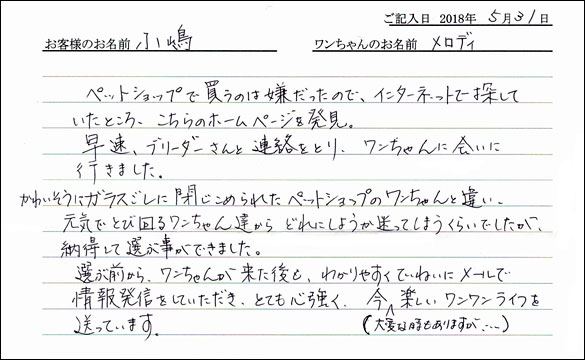 ご記入日 2018年 5月31日
お客様のお名前 小嶋 ワンちゃんのお名前 メロディ
ペットショップで買うのは嫌だったので、インターネットで探して
いたところ、こちらのホームページを発見。
早速、ブリーダーさんと連絡をとり、ワンちゃんに会いに
行きました。
かわいそうにガラスごしに閉じこめられたペットショップのワンちゃんと違い、
元気でとび回るワンちゃん達から どれにしようか迷ってしまうくらいでしたが、
納得して選ぶ事ができました。
選ぶ前から、ワンちゃんが来た後も、わかりやすくていねいにメールで
情報発信をしていただき、とても心強く、今、楽しいワンワンライフを
送っています。
(大変な時もありますが、…)